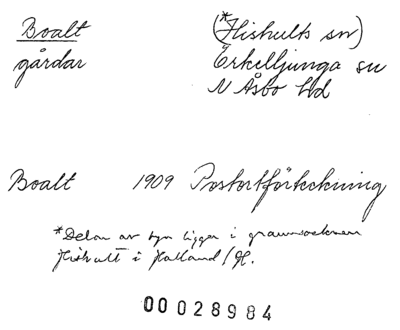 Boalt (*Hishults sn)
gårdar Örkelljunga sn
N Åsbo hd
Boalt 1909 Postortförteckning
*Delar av byn ligger i grannsocknen
Hishult i Halland /
00028984